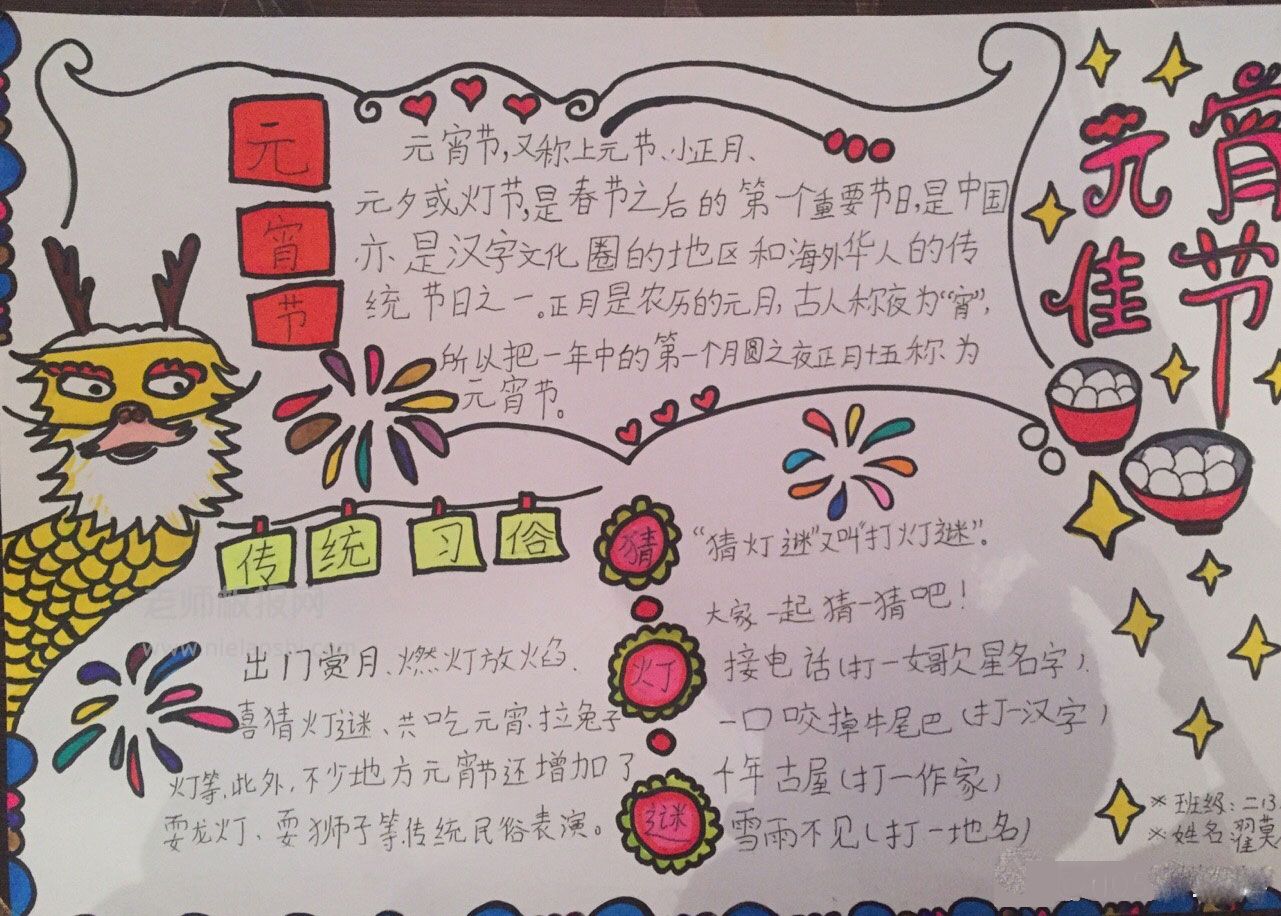 元宵节
元宵佳节
元宵节,又称上元节、小正月、
元夕或灯节,是春节之后的第一个重要节日,是中国
亦是汉字文化圈的地区和海外华人的传
统节日之一。正月是农历的元月,古人称夜为“宵”,
所以把一年中的第一个月圆之夜正月十五称为
元宵节。
传统习俗
出门赏月、燃灯放焰、
喜猜灯谜、共吃元宵、拉兔子
灯等,此外,不少地方元宵节还增加了
耍龙灯、耍狮子等传统民俗表演。
猜灯谜
“猜灯谜”又叫“打灯谜”。
大家一起猜一猜吧!
接电话(打一女歌星名字)
一口咬掉牛尾巴(打一汉字)
千年古屋(打一作家)
雪雨不见(打一地名)
※班级:二13
※姓名翟莫
老师板报网